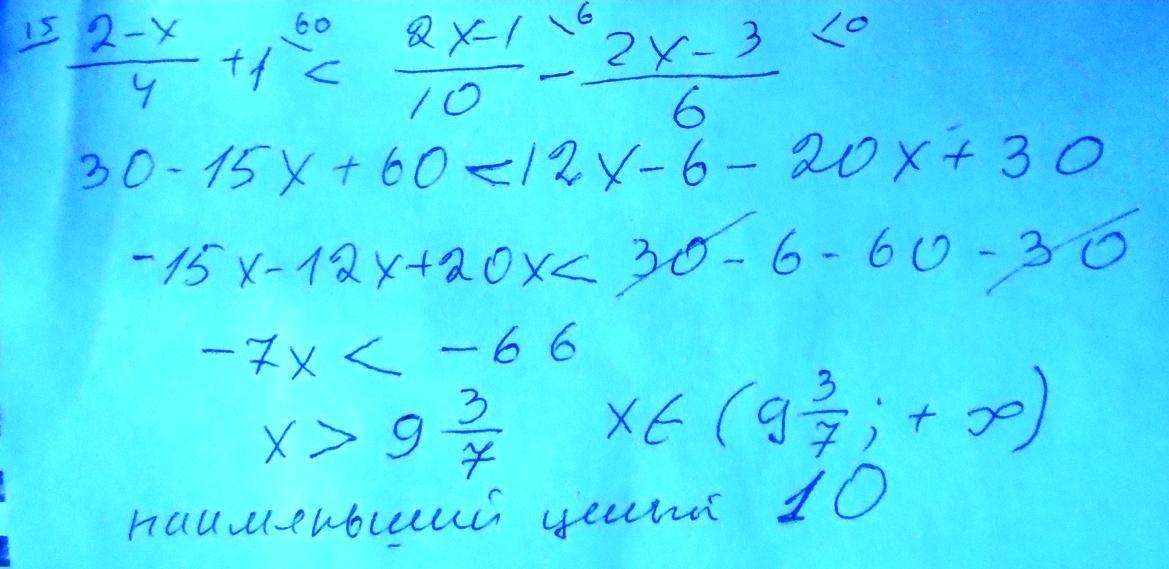 15 2-x/4 + 1 \60 < 2x-1/10 \6 - 2x-3/6 \10
30-15x+60<12x-6-20x+30
-15x-12x+20x<30-6-60-30
-7x < -66
x > 9 3/7 x∈(9 3/7; +∞)
наименьший целый 10